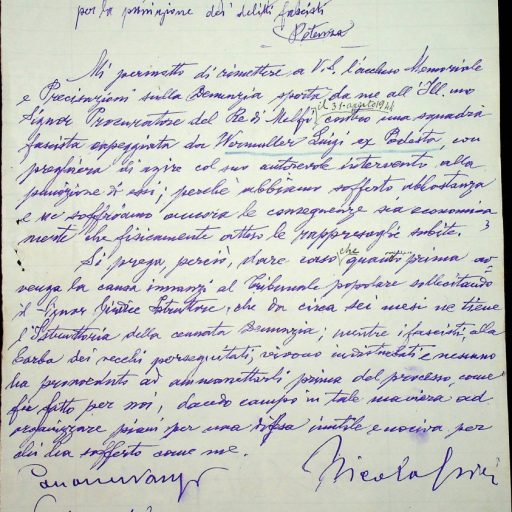 per la punizione dei delitti fascisti
Potenza
Mi permetto di rimettere a V.S. l'accluso Memoriale
e Precisazioni sulla Denunzia sporta da me all'Ill.mo
Signor Procuratore del Re di Melfi il 31-agosto 1944 contro una squadra
fascista capeggiata da Wormuller Luigi ex Podestà, con
preghiera di agire col suo autorevole intervento alla
punizione di essi; perchè abbiamo sofferto abbastanza
e ne soffriamo ancora le conseguenze sia economica
mente che fisicamente attese le rappresaglie subite.
Si prega, perciò, dare caso che quanto prima av
venga la causa innanzi al Tribunale popolare sollecitando
il Signor Giudice Istruttore, che da circa sei mesi ne tiene
l'Istruttoria della cennata Denunzia; mentre i fascisti, alla
barba dei vecchi perseguitati, vivono indisturbati e nessuno
ha provveduto ad ammanettarli prima del processo, come
fu fatto per noi, dando campo in tale maniera ad
organizzare piani per una difesa inutile e nociva per
chi ha sofferto come me.
Nicola